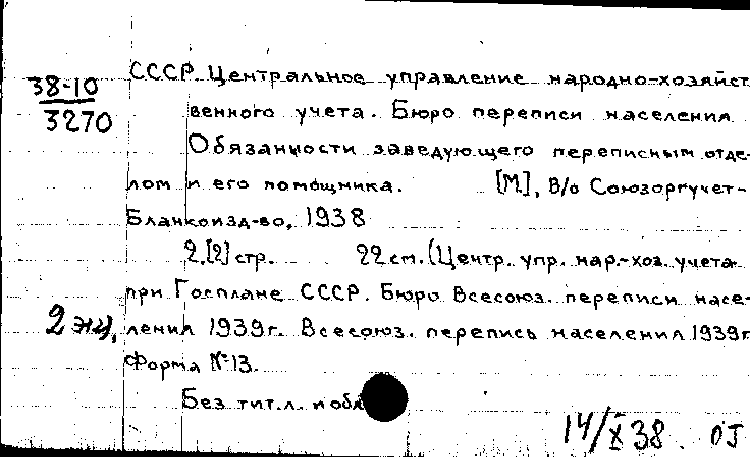 38-10
3270
СССР. Центральное управление народно-хозяйст
венного учета. Бюро переписи населения
Обязанности заведующего переписным отде-
лом и его помощника. [М], В/о Союзоргучет-
Бланкоизд-во, 1938
2.[2] стр. 22 см. (Центр. упр. нар.-хоз. учета
при Госплане СССР. Бюро Всесоюз. переписи насе-
2 экз. ления 1939 г. Всесоюз. перепись населения 1939 г
Форма № 13.
Без тит.л. и обл
14/X 38.